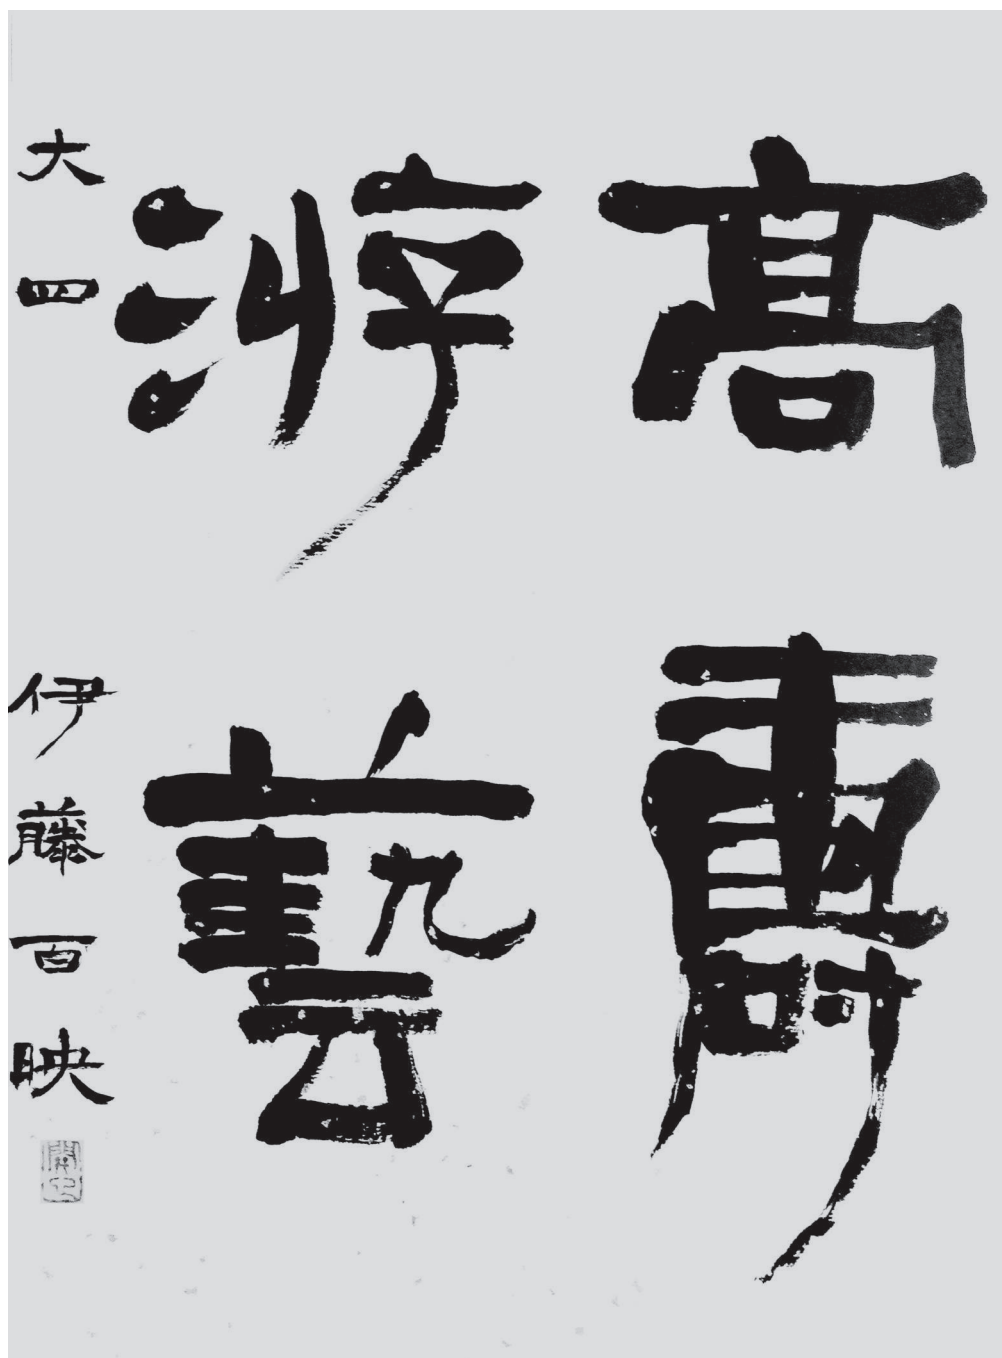 髙壽
游藝
大四 伊藤百映